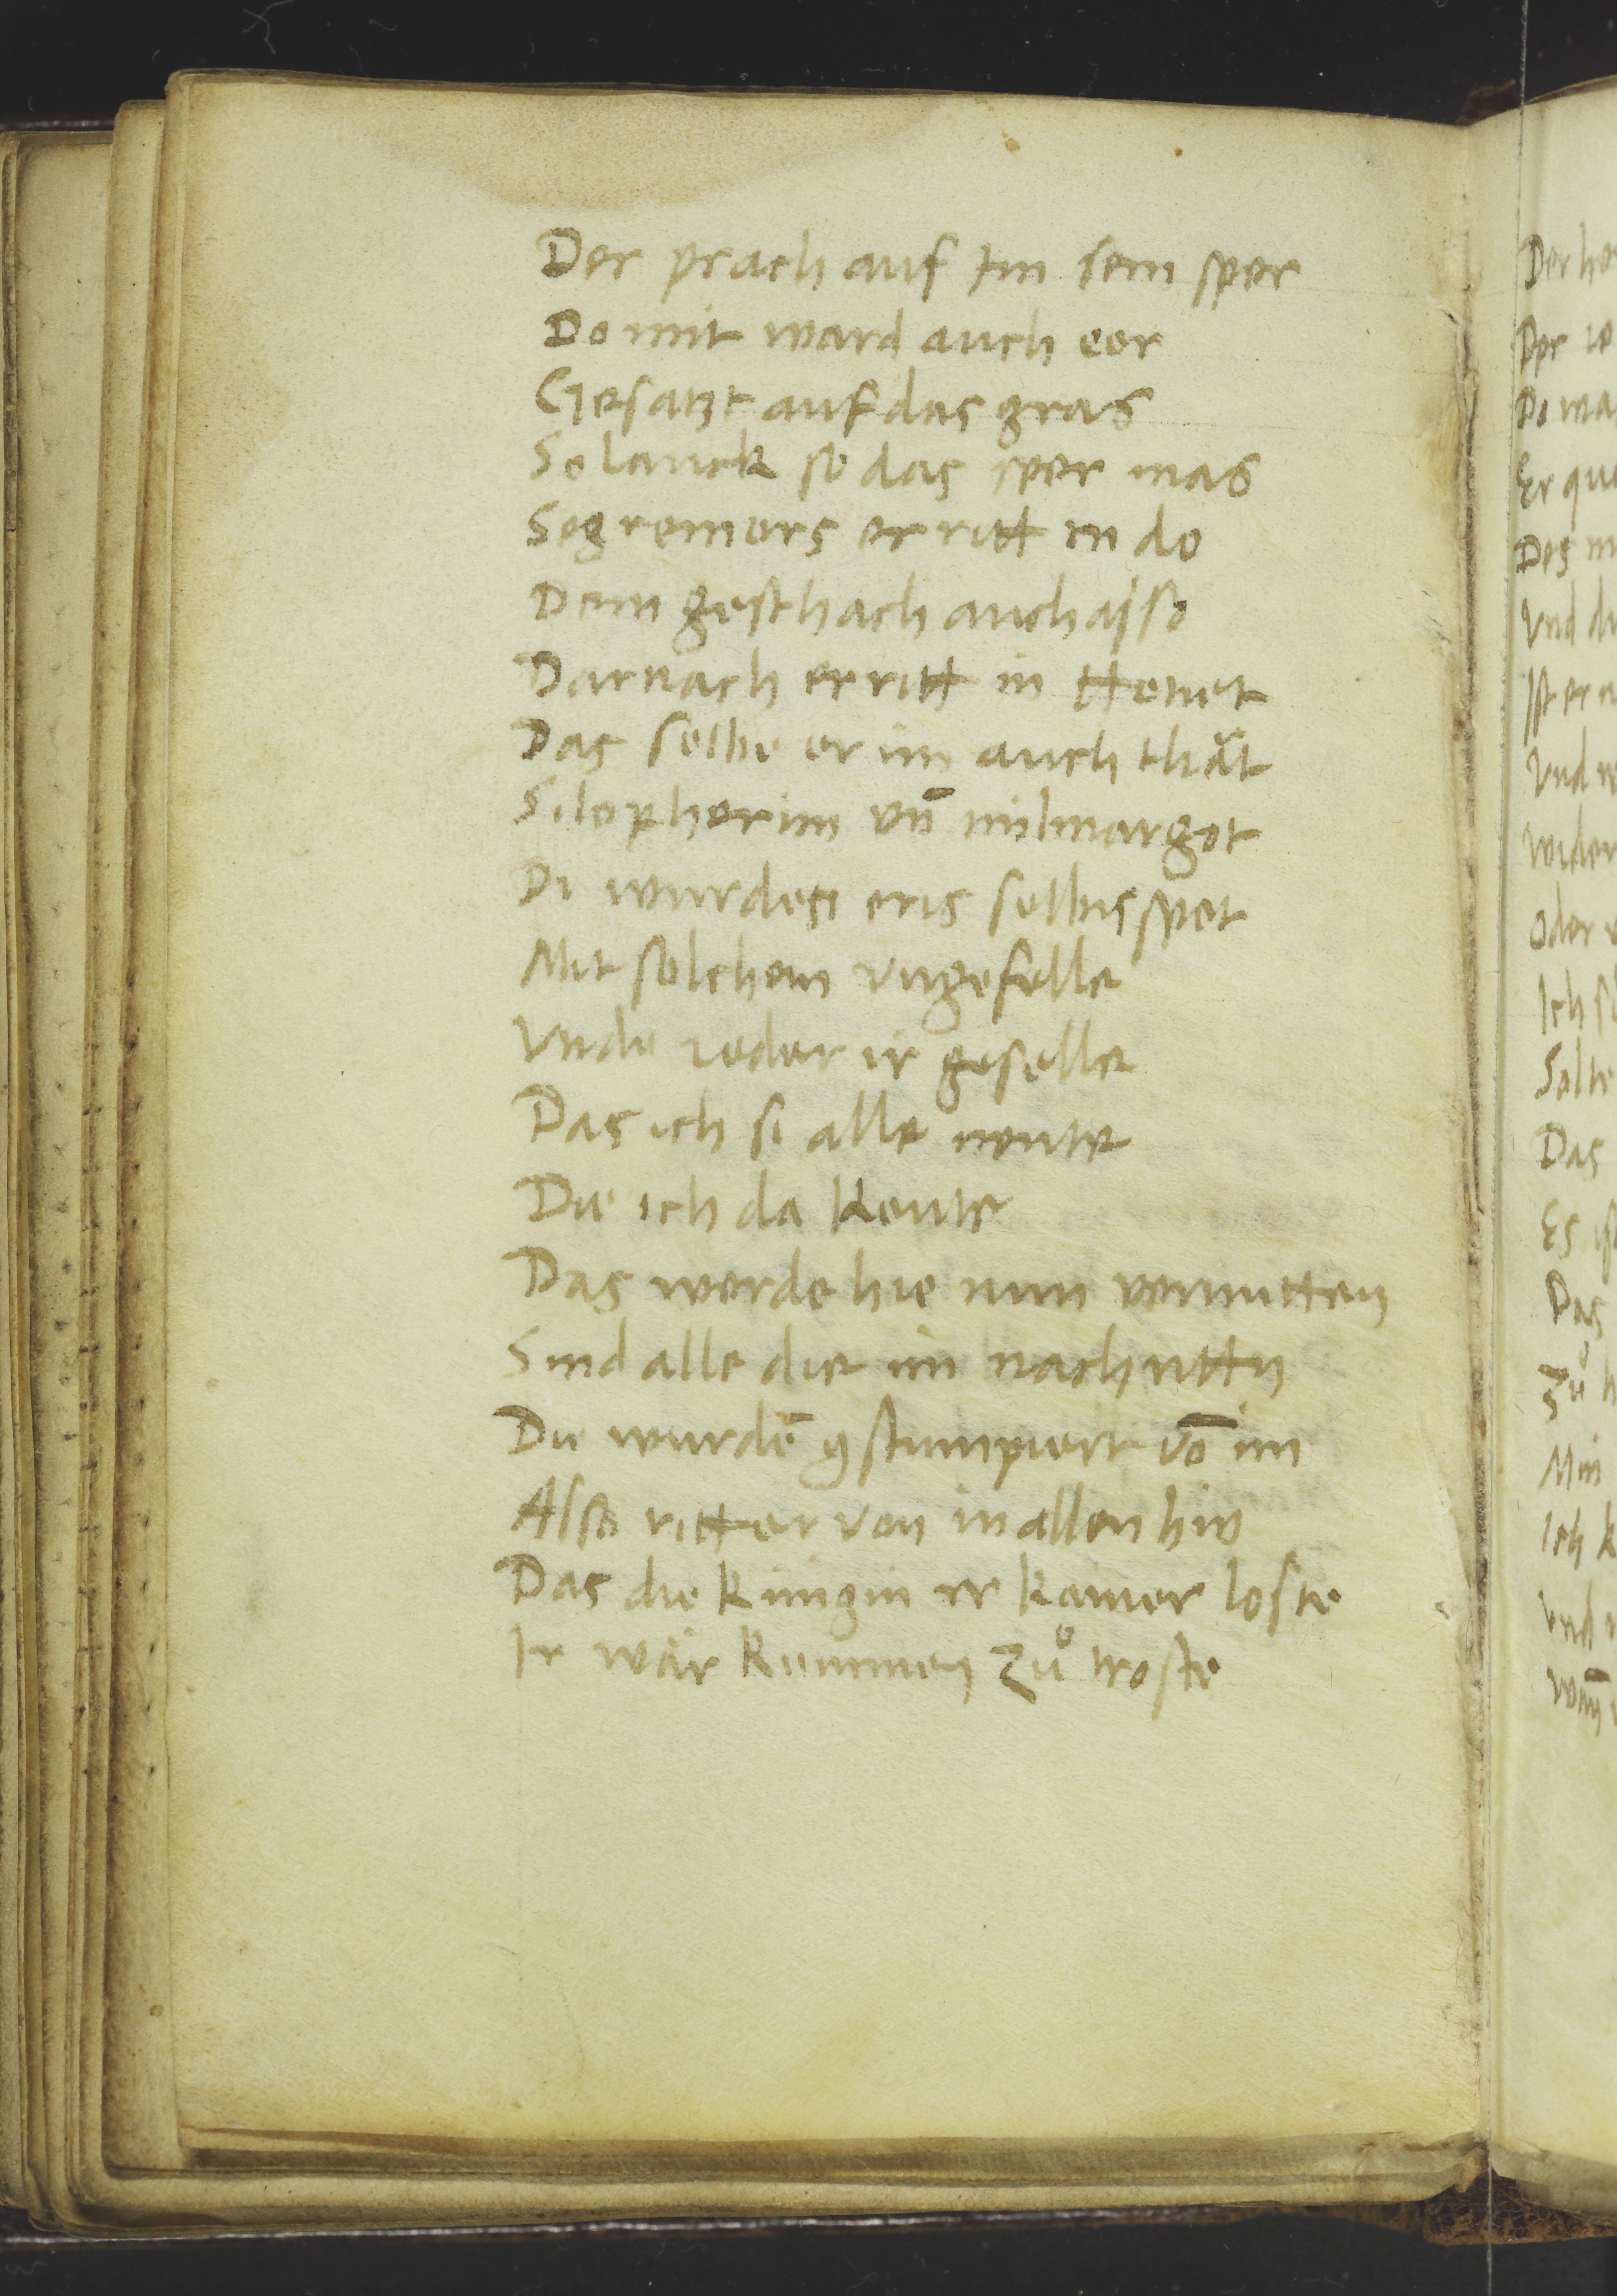 Der prach auf Im sein sper
Do mit ward auch eer
Gesatzt auf das gras
So lanck so das sper mas
Segremers er ritt in do
Dem gesthach auch also
Darnach er ritt in Henet
Das selbe er im auch thät
Silopherim vn̄ milmargot
Di wurden eris selbis spot
Mit solchem vngefelle
Vnde ieder ir geselle
Das ich si alle nente
Die ich da kente
Das werde hie nun vermitten
Sind alle die im nach rittn
Die wurdē gstumpiert vō im
Also ritt er von in allen hin
Das die kungin ir kamer loste
Ir wär kummen zů troste
Der
Der
Do
Er
Des
Vnd
Ist er
Vnd
wider
Oder
Ich
Das
Es
Das
Zů
Min
Ich
vnd